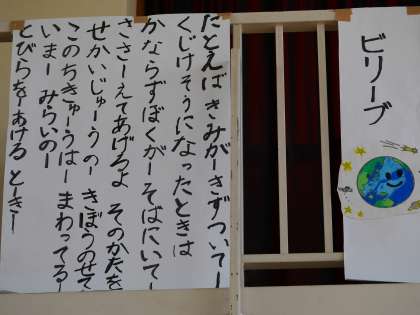 ビリーブ
たとえば きみがーきずついてー
くじけそうに なったときは
かならずぼくがーそばにいてー
ささーえてあげるよ そのかたを
せかいじゅーうのー きぼうのせて
このちきゅーうはー まわってるー
いまー みらいのー
とびらをーあける ときー